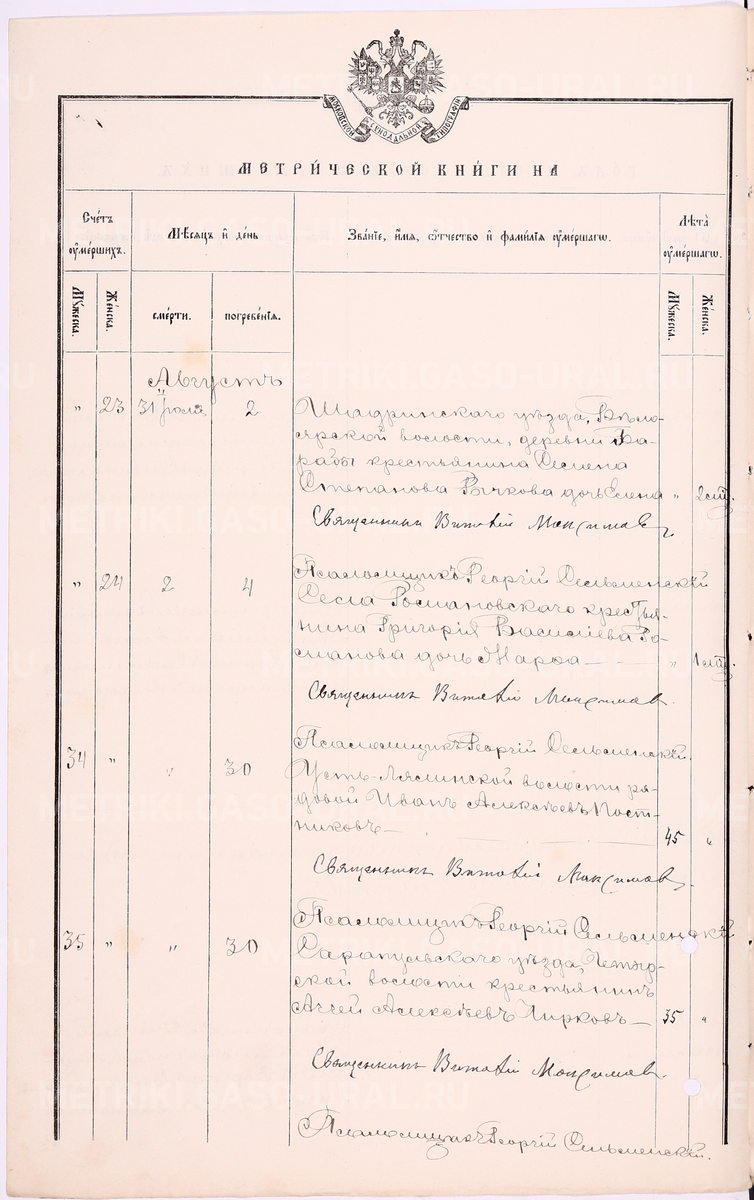 МОСКОВСКОЙ СѴНОДАЛЬНОЙ ТИПОГРАФІИ
МЕТРИ́ЧЕСКОЙ КНИ́ГИ НА
Сче́тъ ᲂу҆ме́ршихъ.
Мѣ́сяцъ и҆ де́нь
Зва́нїе, и҆́мѧ, ѻ҆́тчество и҆ фами́лїѧ ᲂу҆ме́ршагѡ.
Лѣ́та ᲂу҆ме́ршагѡ.
Мꙋ́жеска.
Же́нска.
сме́рти.
погребе́нїѧ.
Мꙋ́жеска.
Же́нска.
Августъ
" 23 31 Іюля 2 Шадринскаго уѣзда, Бѣло-
ярской волости, деревни
крестьянина Семена
Степанова Рычкова дочь Елена "
Священникъ Виталій Максимовъ
Псаломщикъ Георгій Сельменскій
" 24 2 4 Села Романовскаго крестья-
нина Григорія Василіева Ро-
манова дочь Марѳа "
Священникъ Виталій Максимовъ.
Псаломщикъ Георгій Сельменскій.
34 " " 30 Усть-Лялинской волости ря-
довой Иванъ Алексѣевъ Пост-
никовъ 45 "
Священникъ Виталій Максимовъ.
Псаломщикъ Георгій Сельменскій
35 " " 30 Сарапульскаго уѣзда,
волости крестьянинъ
Алексѣевъ Чирковъ 35 "
Священникъ Виталій Максимовъ.
Псаломщикъ Георгій Сельменскій.
METRIKI.GASO-URAL.RU